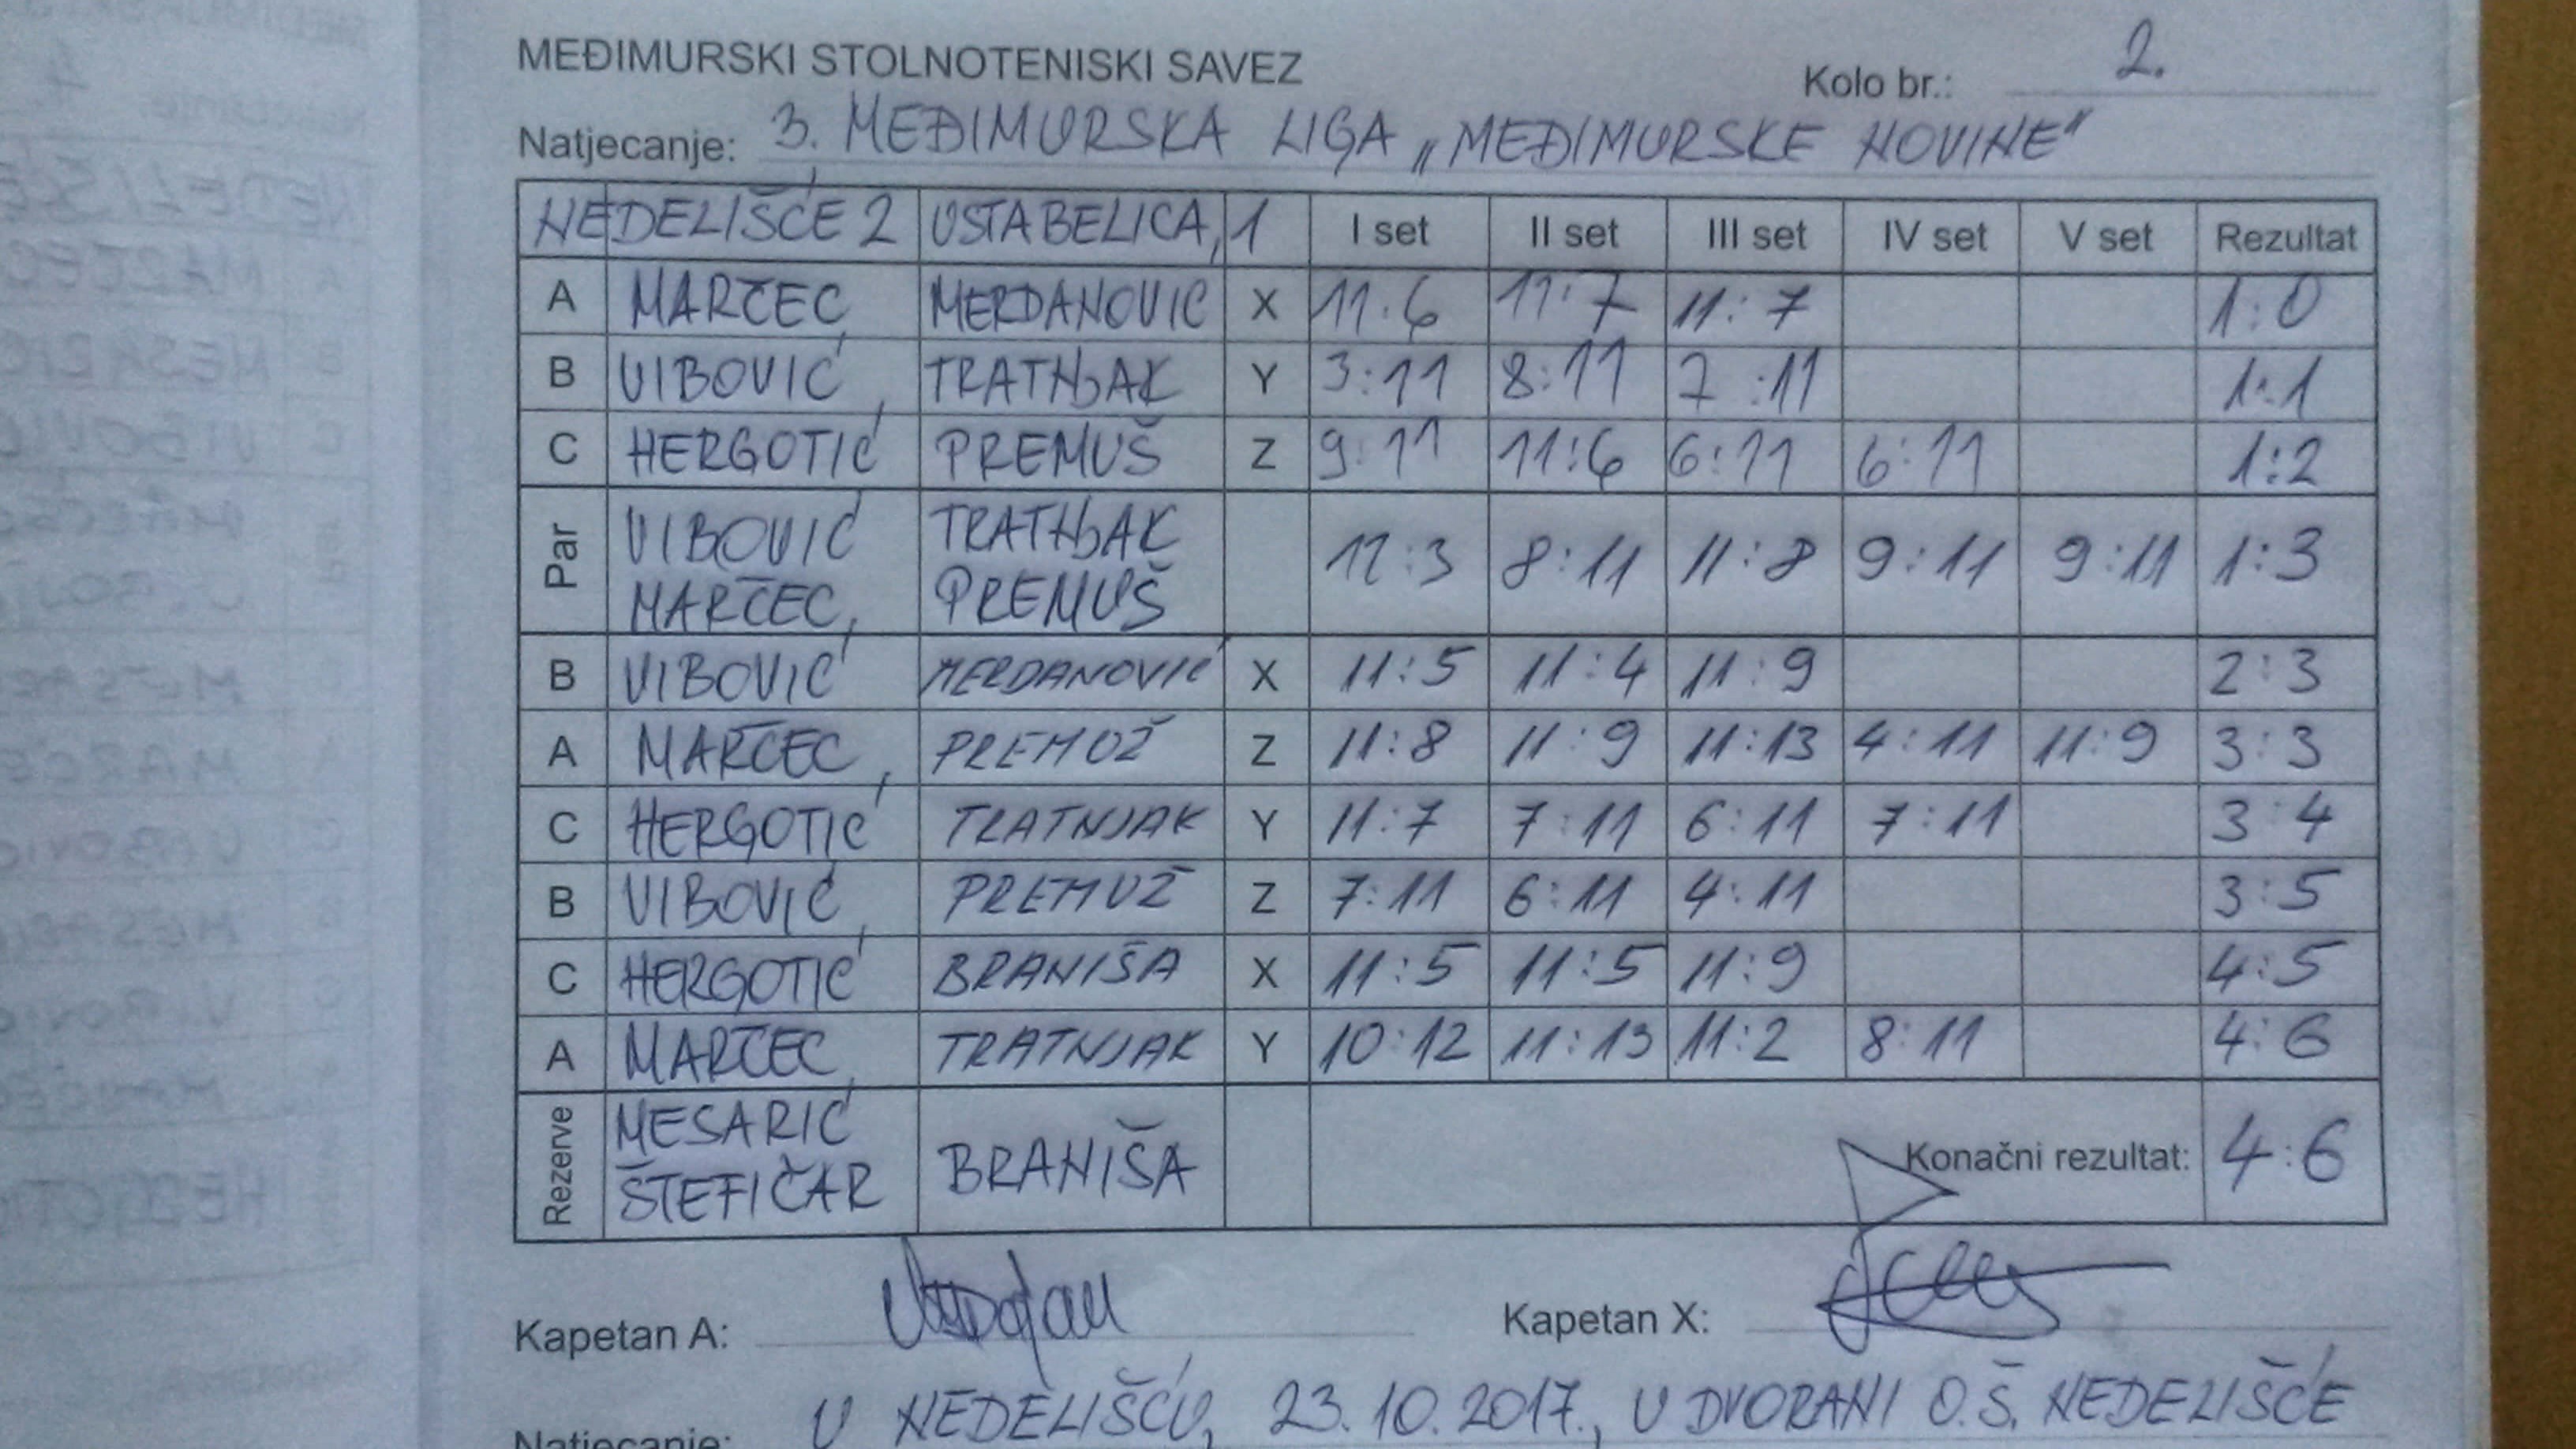 MEĐIMURSKI STOLNOTENISKI SAVEZ
Kolo br.: 2.
Natjecanje: 3. MEĐIMURSKA LIGA „MEĐIMURSKE NOVINE"
NEDELIŠĆE 2 USTABELICA, 1 I set II set III set IV set V set Rezultat
A MARČEC MERDANOVIĆ X 11:6 11:7 11:7 1:0
B VIBOVIĆ TRATNJAK Y 3:11 8:11 7:11 1:1
C HERGOTIĆ PREMUŠ Z 9:11 11:6 6:11 6:11 1:2
Par VIBOVIĆ TRATNJAK 8:11 11:8 9:11 9:11 1:3
MARČEC, PREMUŠ
B VIBOVIĆ MERDANOVIĆ X 11:5 11:4 11:9 2:3
A MARČEC, PREMUŽ Z 11:8 11:9 11:13 4:11 11:9 3:3
C HERGOTIĆ TRATNJAK Y 11:7 7:11 6:11 7:11 3:4
B VIBOVIĆ, PREMUŽ Z 7:11 6:11 4:11 3:5
C HERGOTIĆ BRANIŠA X 11:5 11:5 11:9 4:5
A MARČEC, TRATNJAK Y 10:12 11:13 11:2 8:11 4:6
Rezerve MESARIĆ BRANIŠA Konačni rezultat: 4:6
ŠTEFIČAR
Kapetan A: Kapetan X:
Natjecanje: U NEDELIŠĆU, 23.10.2017., U DVORANI O.Š. NEDELIŠĆE